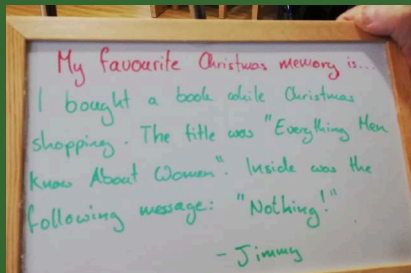 My favourite Christmas memory is...
I bought a book while Christmas
shopping. The title was "Everything Men
Know About Women". Inside was the
following message: "Nothing!"
- Jimmy